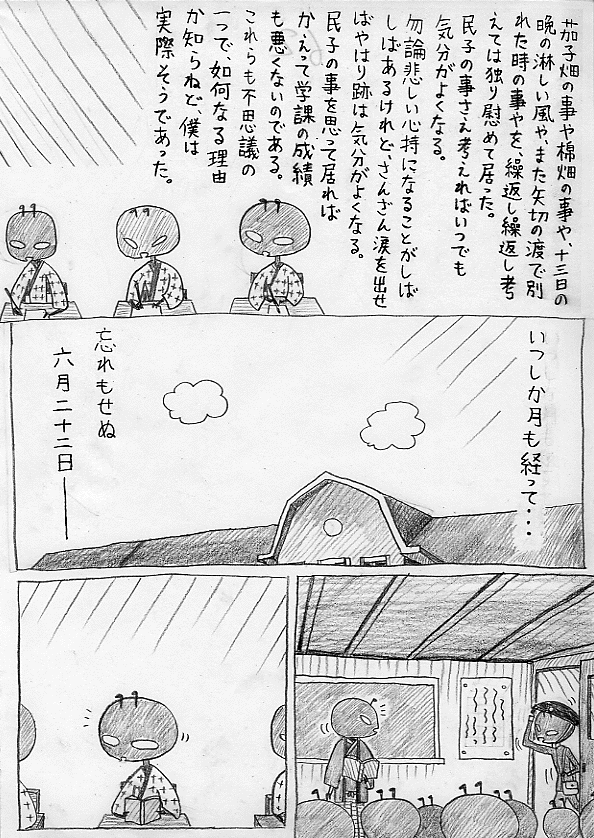 茄子畑の事や棉畑の事や、十三日の
晩の淋しい風や、また矢切の渡で別
れた時の事やを、繰返し繰返し考
えては独り慰めて居った。
民子の事さえ考えればいつでも
気分がよくなる。
勿論悲しい心持になることがしば
しばあるけれど、さんざん涙を出せ
ばやはり跡は気分がよくなる。
民子の事を思って居れば
かえって学課の成績
も悪くないのである。
これらも不思議の
一つで、如何なる理由
か知らねど、僕は
実際そうであった。
いつしか月も経って・・・
忘れもせぬ
六月二十二日――